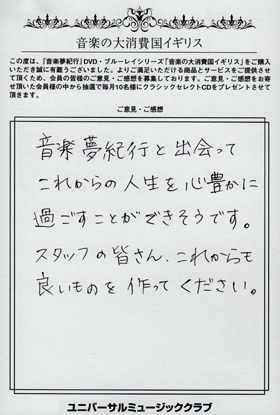 音楽の大消費国イギリス
この度は、「音楽夢紀行」DVD・ブルーレイシリーズ「音楽の大消費国イギリス」をご購入
いただき誠に有難うございました。よりご満足いただける商品とサービスをご提供させ
て頂くため、会員の皆様のご意見・ご感想を募集しております。ご意見・ご感想をお寄
せ頂いた会員様の中から抽選で毎月10名様にクラシックセレクトCDをプレゼントさせて
頂きます。
ご意見・ご感想
音楽夢紀行と出会って
これからの人生を心豊かに
過ごすことができそうです。
スタッフの皆さん、これからも
良いものを作ってください。
ユニバーサルミュージッククラブ